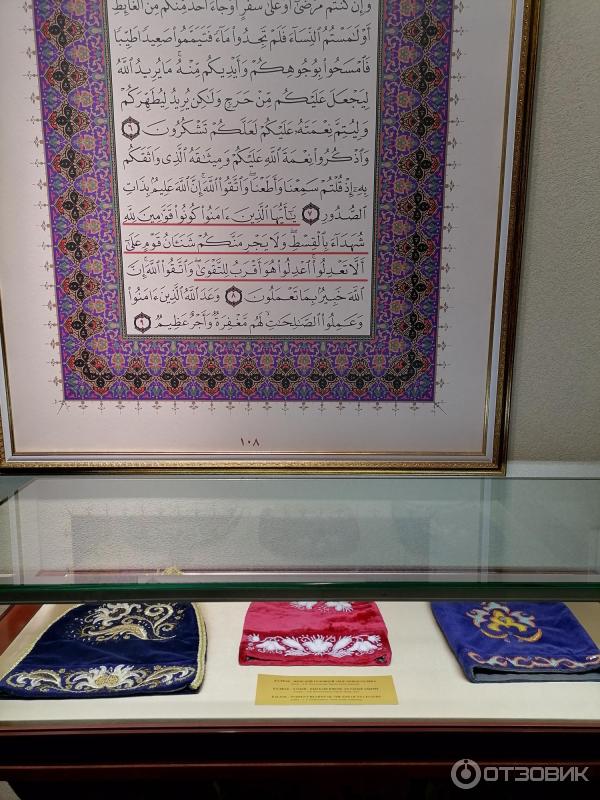 وَإِن كُنتُم مَّرْضَىٰٓ أَوْ عَلَىٰ سَفَرٍ أَوْ جَآءَ أَحَدٌ مِّنكُم مِّنَ ٱلْغَآئِطِ
أَوْ لَٰمَسْتُمُ ٱلنِّسَآءَ فَلَمْ تَجِدُوا۟ مَآءً فَتَيَمَّمُوا۟ صَعِيدًا طَيِّبًا
فَٱمْسَحُوا۟ بِوُجُوهِكُمْ وَأَيْدِيكُم مِّنْهُ مَا يُرِيدُ ٱللَّهُ
لِيَجْعَلَ عَلَيْكُم مِّنْ حَرَجٍ وَلَٰكِن يُرِيدُ لِيُطَهِّرَكُمْ
وَلِيُتِمَّ نِعْمَتَهُۥ عَلَيْكُمْ لَعَلَّكُمْ تَشْكُرُونَ ٦
وَٱذْكُرُوا۟ نِعْمَةَ ٱللَّهِ عَلَيْكُمْ وَمِيثَٰقَهُ ٱلَّذِى وَاثَقَكُم
بِهِۦٓ إِذْ قُلْتُمْ سَمِعْنَا وَأَطَعْنَا وَٱتَّقُوا۟ ٱللَّهَ إِنَّ ٱللَّهَ عَلِيمٌۢ بِذَاتِ
ٱلصُّدُورِ ٧ يَٰٓأَيُّهَا ٱلَّذِينَ ءَامَنُوا۟ كُونُوا۟ قَوَّٰمِينَ لِلَّهِ
شُهَدَآءَ بِٱلْقِسْطِ وَلَا يَجْرِمَنَّكُمْ شَنَـَٔانُ قَوْمٍ عَلَىٰٓ
أَلَّا تَعْدِلُوا۟ ٱعْدِلُوا۟ هُوَ أَقْرَبُ لِلتَّقْوَىٰ وَٱتَّقُوا۟ ٱللَّهَ إِنَّ
ٱللَّهَ خَبِيرٌۢ بِمَا تَعْمَلُونَ ٨ وَعَدَ ٱللَّهُ ٱلَّذِينَ ءَامَنُوا۟
وَعَمِلُوا۟ ٱلصَّٰلِحَٰتِ لَهُم مَّغْفِرَةٌ وَأَجْرٌ عَظِيمٌ ٩
١٠٨
ОТЗОВИК